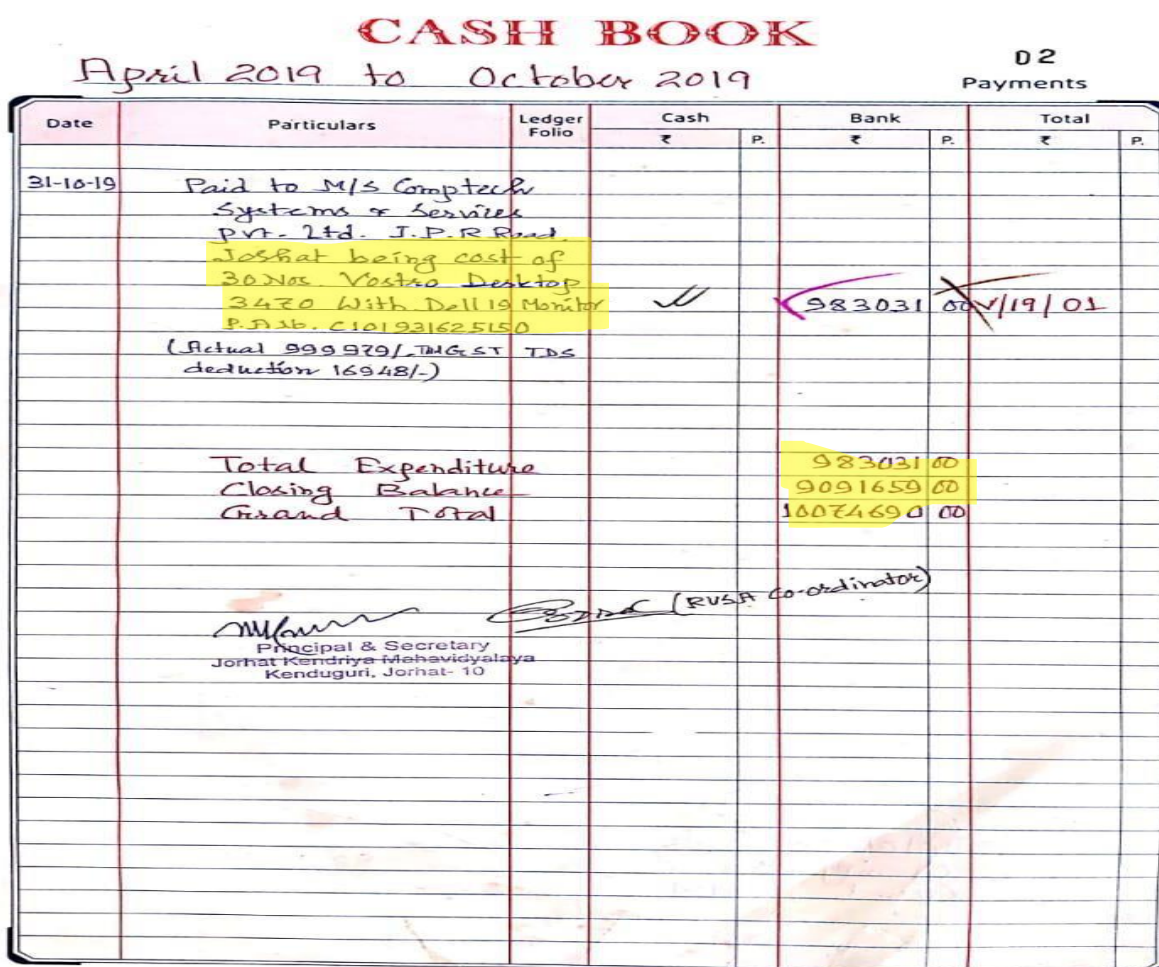 CASH BOOK
April 2019 to October 2019
D2
Payments
Date Particulars Ledger Folio Cash Bank Total
₹ P. ₹ P. ₹ P.
31-10-19 Paid to M/S Comptech
Systems & Services
Pvt. Ltd. J.P.R Road
Jorhat being cost of
30 Nos. Vostro Desktop
3470 With Dell 19 Monitor 983031 00 V/19/01
C101931625150
(Actual 999979/- GST TDS
deduction 16948/-)
Total Expenditure 983031 00
Closing Balance 9091659 00
Grand Total 10074690 00
(RUSA Co-ordinator)
Principal & Secretary
Jorhat Kendriya Mahavidyalaya
Kenduguri, Jorhat- 10